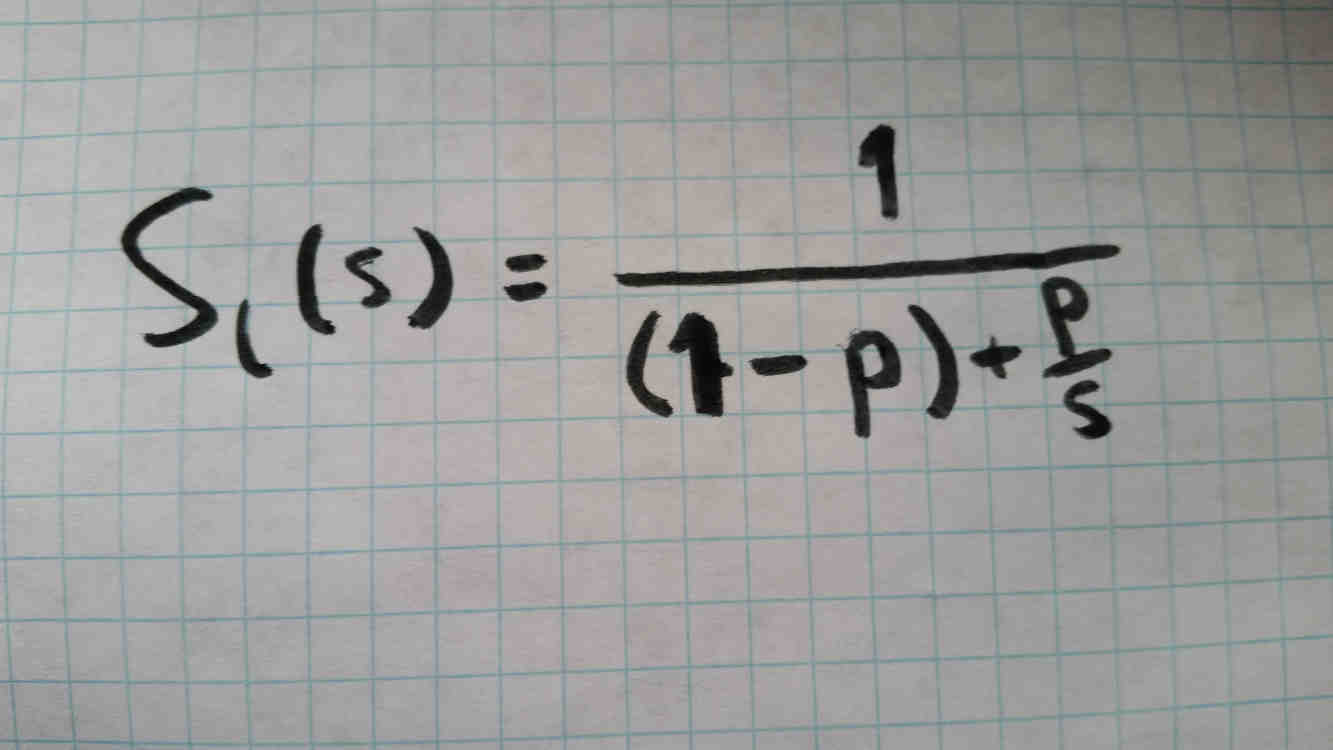 S₍(s) = 1 / ((1 - p) + p/s)